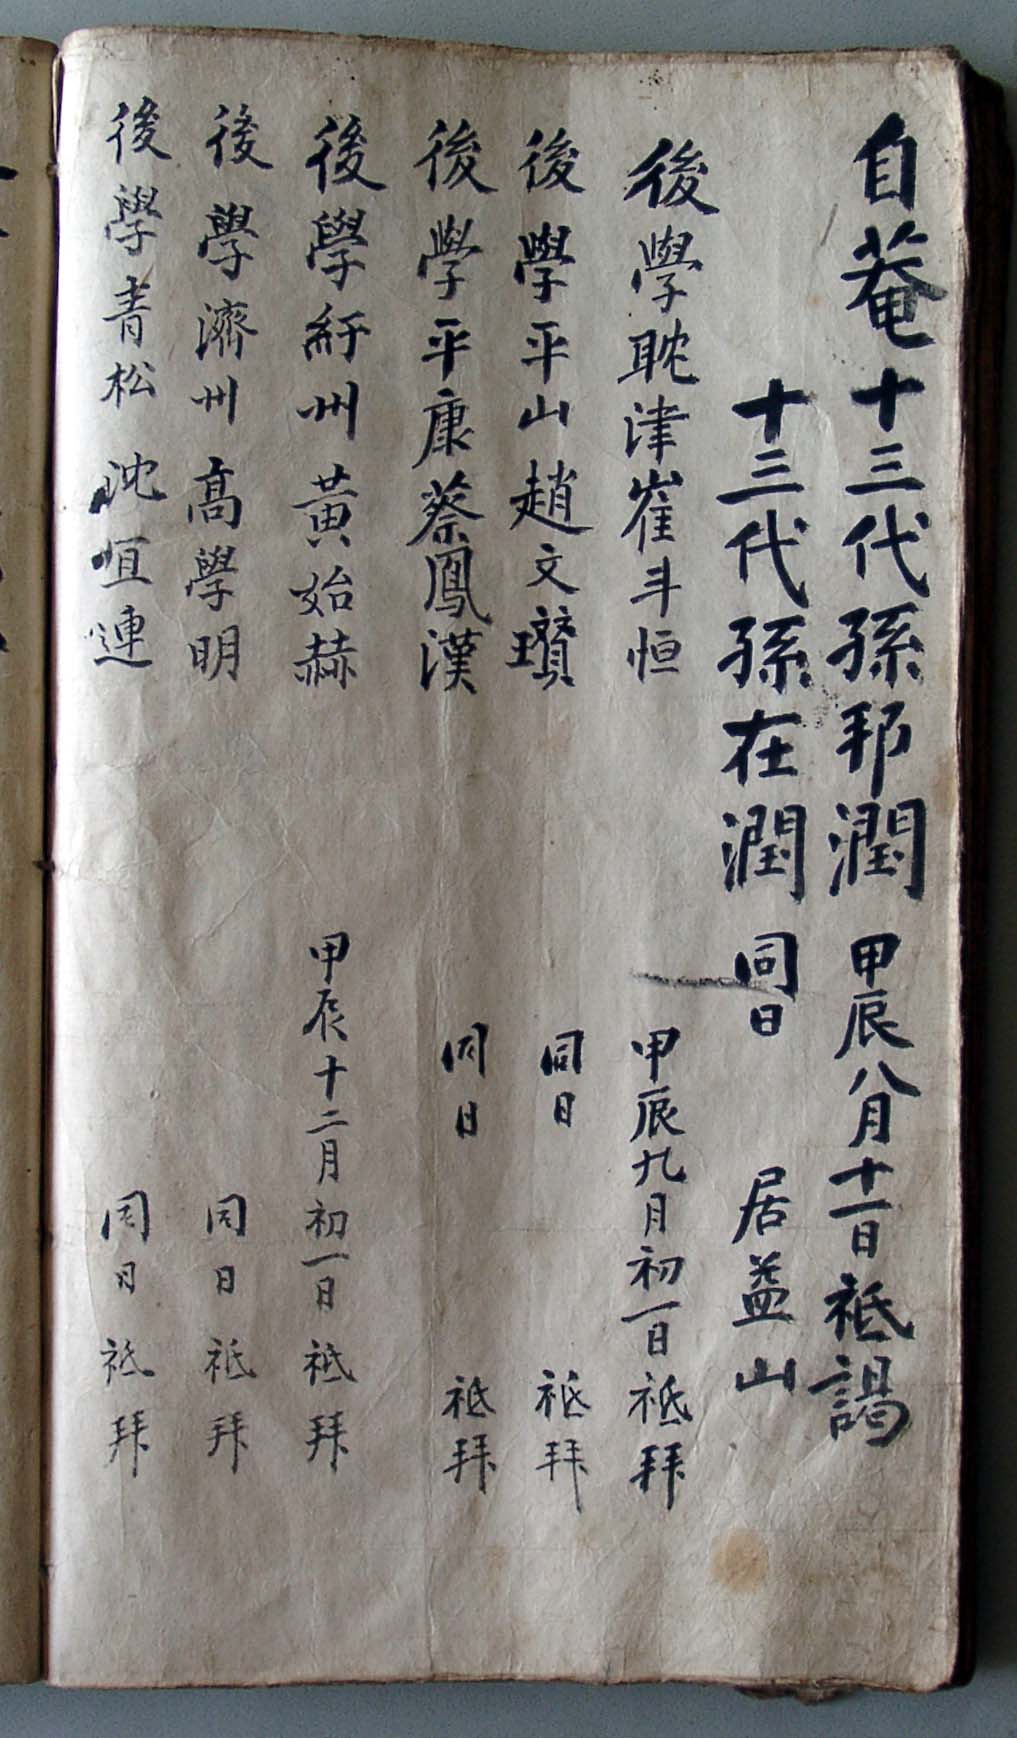 自菴十三代孫邦潤 甲辰八月十一日祗謁
十三代孫在潤 同日 居益山
後學耽津崔斗恒 甲辰九月初一日祗拜
後學平山趙文瓚 同日 祗拜
後學平康蔡鳳漢 同日 祗拜
後學紆州黃始赫 甲辰十二月初一日祗拜
後學濟州高學明 同日 祗拜
後學青松沈恒連 同日 祗拜